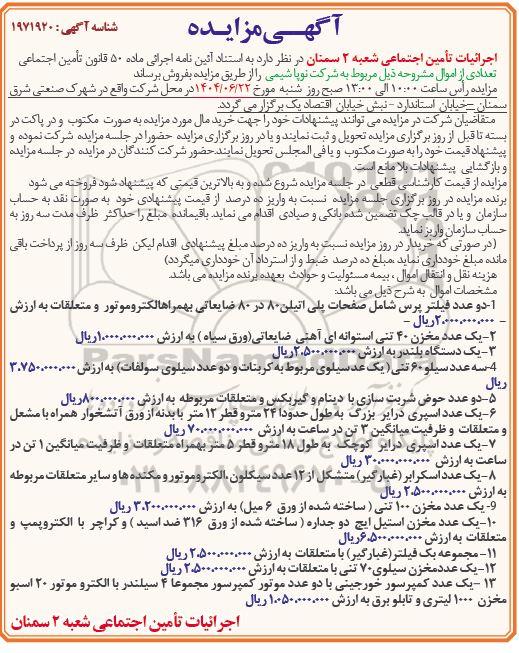 آگهـی مزایـده
شناسه آگهی: ۱۹۷۱۹۲۰
اجرائیات تأمین اجتماعی شعبه ۲ سمنان در نظر دارد به استناد آئین نامه اجرائی ماده ۵۰ قانون تأمین اجتماعی
تعدادی از اموال مشروحه ذیل مربوط به شرکت نوپا شیمی را از طریق مزایده بفروش برساند
مزایده رأس ساعت ۱۰:۰۰ الی ۱۳:۰۰ صبح روز شنبه مورخ ۱۴۰۴/۰۶/۲۲ در محل شرکت واقع در شهرک صنعتی شرق
سمنان –خیابان استاندارد - نبش خیابان اقتصاد یک برگزار می گردد.
متقاضیان شرکت در مزایده می توانند پیشنهادات خود را جهت خرید مال مورد مزایده به صورت مکتوب و در پاکت در
بسته تا قبل از روز برگزاری مزایده تحویل و ثبت نمایند و یا در روز برگزاری مزایده حضورا در جلسه مزایده شرکت نموده و
پیشنهاد قیمت خود را به صورت مکتوب و یا فی المجلس تحویل نمایند.حضور شرکت کنندگان در مزایده در جلسه مزایده
و بازگشایی پیشنهادات بلا مانع است.
مزایده از قیمت کارشناسی قطعی در جلسه مزایده شروع شده و به بالاترین قیمتی که پیشنهاد شود فروخته می شود
برنده مزایده در روز برگزاری جلسه مزایده نسبت به واریز ده درصد از قیمت پیشنهادی خود به صورت نقد به حساب
سازمان و یا در قالب چک تضمین شده بانکی و صیادی اقدام می نماید. باقیمانده مبلغ را حداکثر ظرف مدت سه روز به
حساب سازمان واریز نماید.
(در صورتی که خریدار در روز مزایده نسبت به واریز ده درصد مبلغ پیشنهادی اقدام لیکن ظرف سه روز از پرداخت باقی
مانده مبلغ خودداری نماید مبلغ ده درصد ضبط و از استرداد آن خودداری میگردد)
هزینه نقل و انتقال اموال ، بیمه مسئولیت و حوادث بعهده برنده مزایده می باشد.
مشخصات اموال به شرح ذیل می باشد:
۱-دو عدد فیلتر پرس شامل صفحات پلی اتیلن۸۰ در ۸۰ ضایعاتی بهمراهالکتروموتور و متعلقات به ارزش
۲.۰۰۰.۰۰۰.۰۰۰ریال –
۲-یک عدد مخزن ۴۰ تنی استوانه ای آهنی ضایعاتی(ورق سیاه ) به ارزش ۱.۰۰۰.۰۰۰.۰۰۰ریال
۳-یک دستگاه بلندر به ارزش ۲.۵۰۰.۰۰۰.۰۰۰ریال
۴-سه عدد سیلو ۶۰ تنی ( یک عد سیلوی مربوط به کربنات و دو عدد سیلوی سولفات) به ارزش ۳.۷۵۰.۰۰۰.۰۰۰
ریال
۵-دو عدد حوض شربت سازی با دینام و گیربکس و متعلقات مربوطه به ارزش ۸۰۰.۰۰۰.۰۰۰ریال
۶-یک عدد اسپری درایر بزرگ به طول حدودا ۲۴ مترو قطر ۱۲ متر با بدنه از ورق آتشخوار همراه با مشعل
و متعلقات و ظرفیت میانگین ۳ تن در ساعت به ارزش ۷۰.۰۰۰.۰۰۰.۰۰۰ ریال
۷-یک عدد اسپری درایر کوچک به طول ۱۸ مترو قطر ۵ متر بهمراه متعلقات و ظرفیت میانگین ۱ تن در
ساعت به ارزش ۳۰.۰۰۰.۰۰۰.۰۰۰ ریال
۸-یک عدد اسکرابر (غبارگیر) متشکل از ۱۲ عدد سیکلون،الکتروموتور و مکنده ها و سایر متعلقات مربوطه
به ارزش ۲.۵۰۰.۰۰۰.۰۰۰ ریال
۹-یک عدد مخزن ۱۰۰ تنی ( ساخته شده از ورق ۶ میل) به ارزش ۳.۲۰۰.۰۰۰.۰۰۰ ریال
۱۰-یک عدد مخزن استیل ایچ دو جداره ( ساخته شده از ورق ۳۱۶ ضد اسید ) و کراچر با الکتروپمپ و
متعلقات به ارزش ۶.۵۰۰.۰۰۰.۰۰۰ریال
۱۱-مجموعه بک فیلتر(غبارگیر) با متعلقات به ارزش ۲.۵۰۰.۰۰۰.۰۰۰ ریال
۱۲-یک عددمخزن سیلوی۷۰ تنی با متعلقات به ارزش ۲.۵۰۰.۰۰۰.۰۰۰ ریال
۱۳ –یک عدد کمپرسور خورجینی با دو عدد موتور کمپرسور مجموعا ۴ سیلندر با الکترو موتور ۲۰ اسبو
مخزن ۱۰۰۰ لیتری و تابلو برق به ارزش ۱.۰۵۰.۰۰۰.۰۰۰ ریال
اجرائیات تأمین اجتماعی شعبه ۲ سمنان